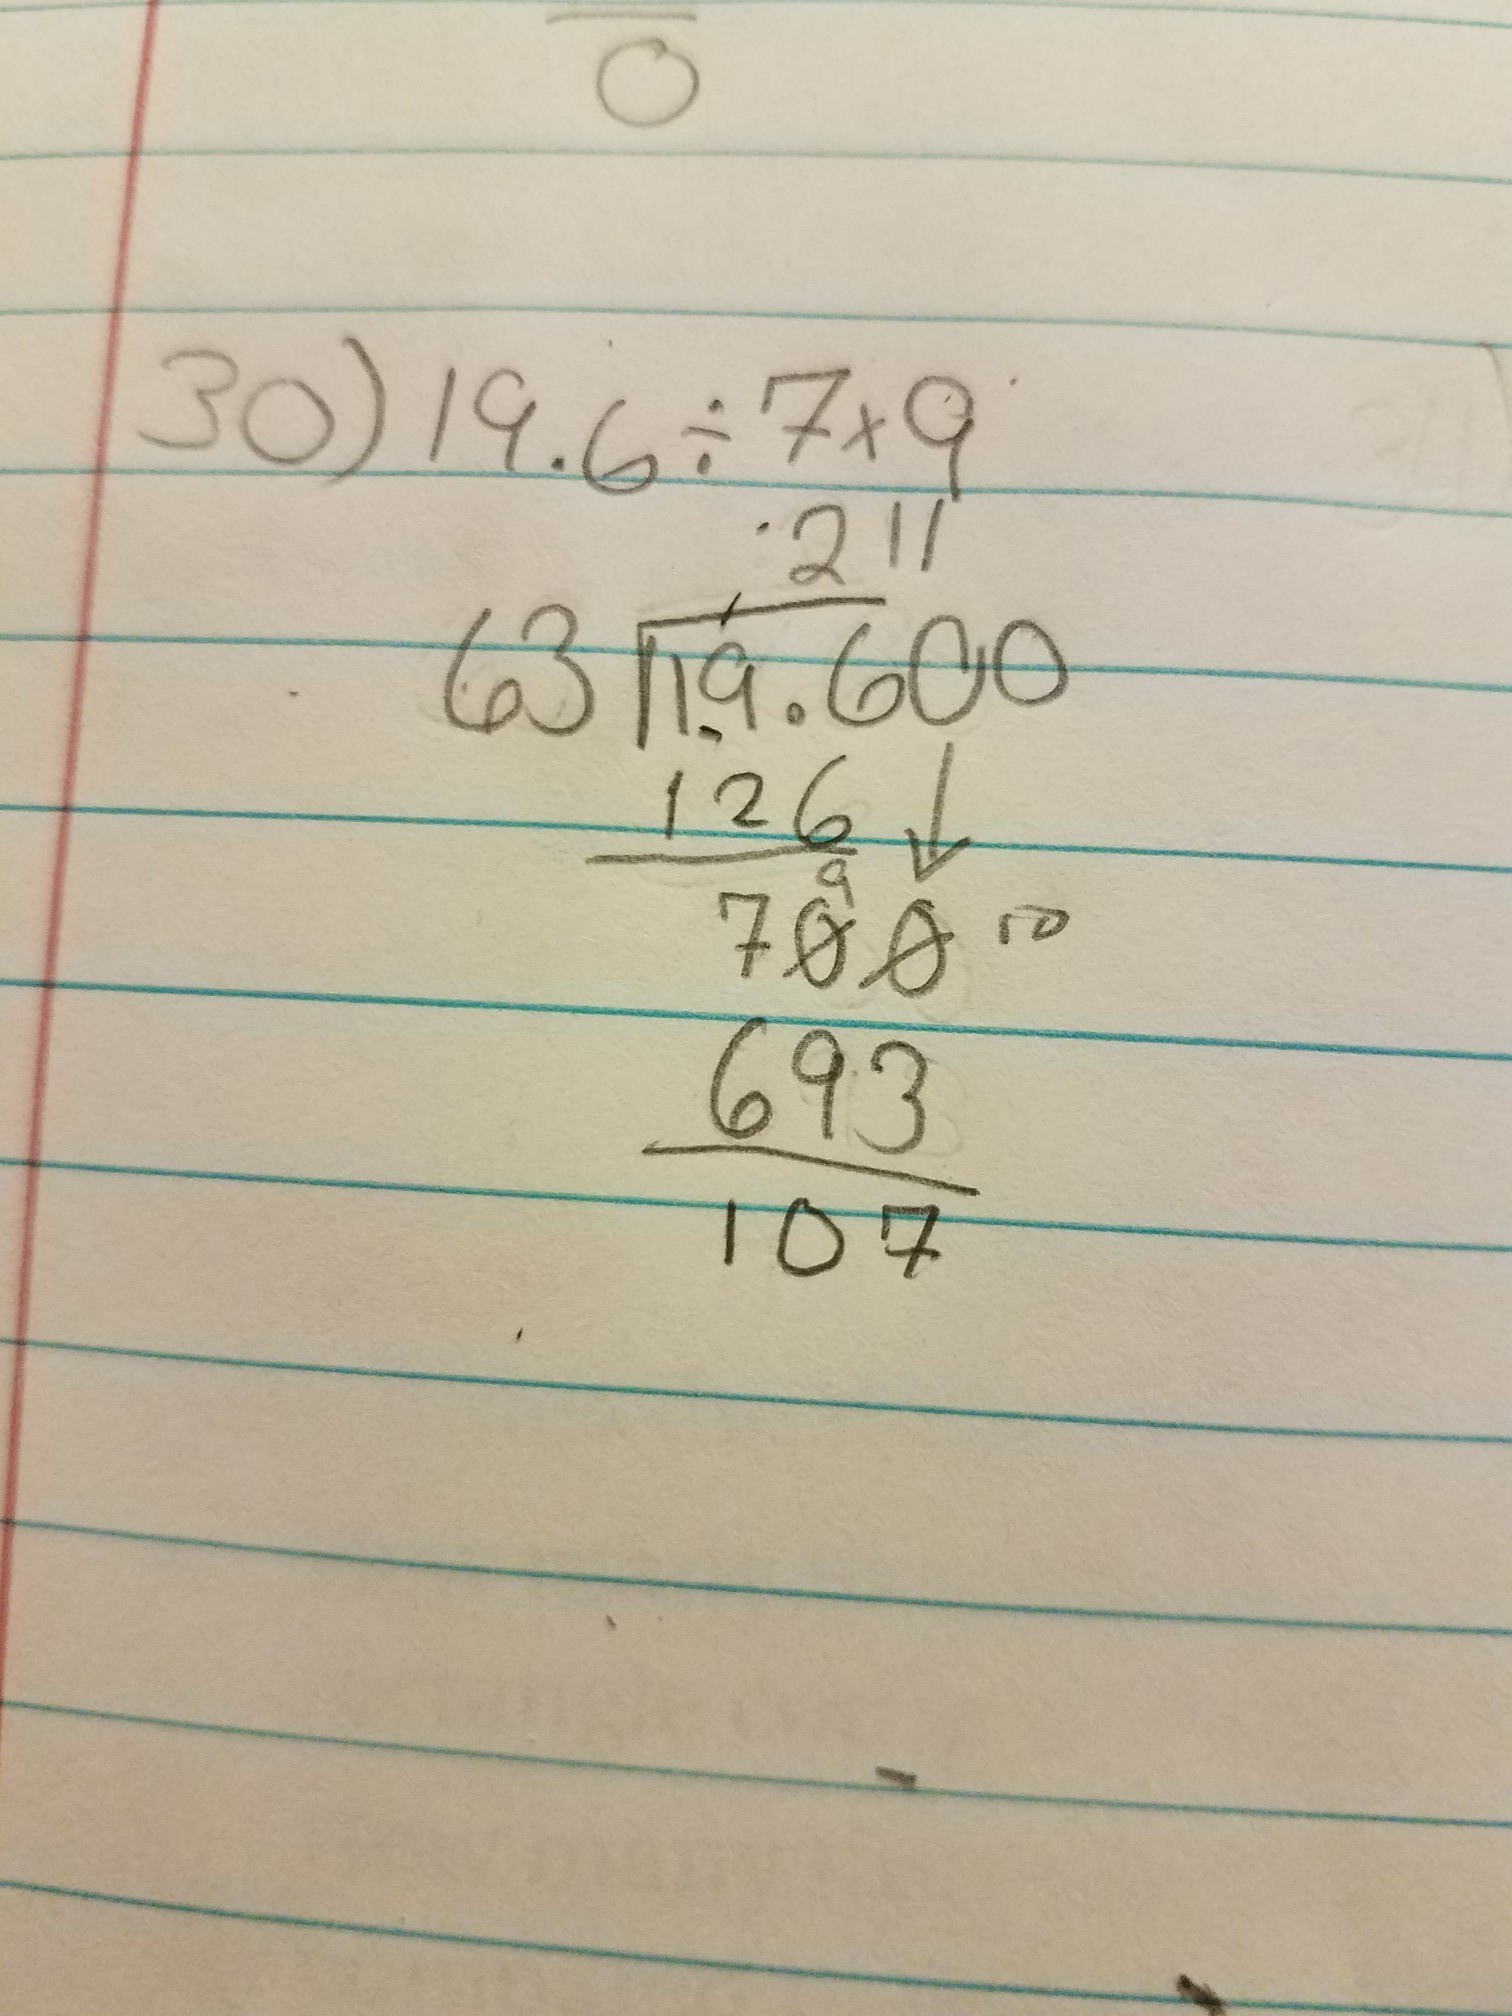 0
30) 19.6 ÷ 7 x 9
.211
63 19.600
126
9
700 10
693
107